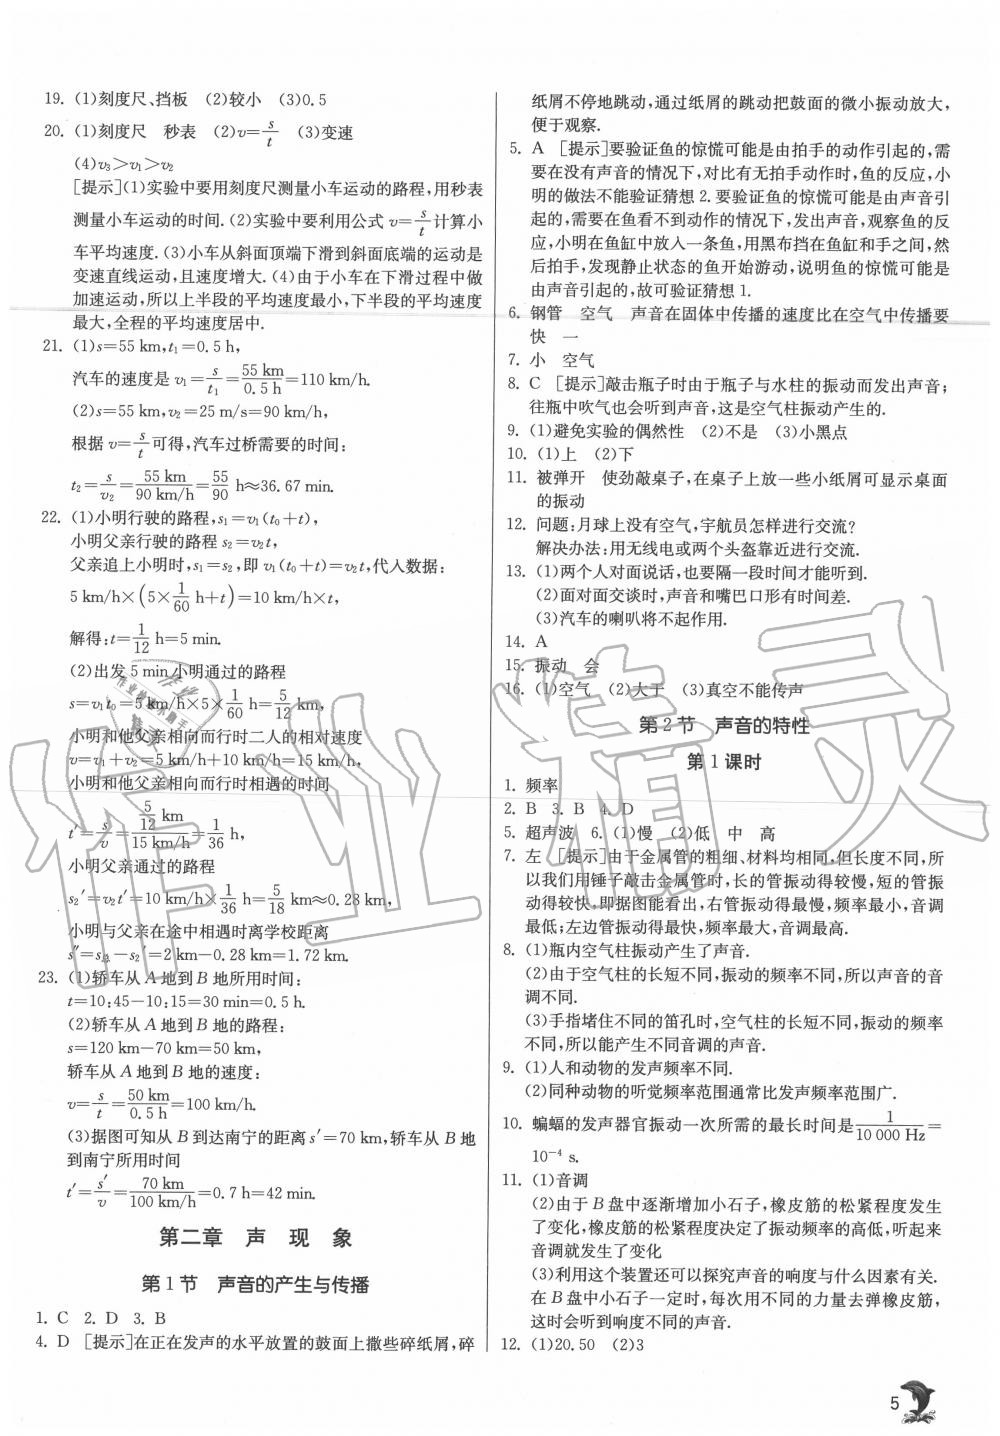 19. (1)刻度尺、挡板 (2)较小 (3)0.5
20. (1)刻度尺 秒表 (2)v=s/t (3)变速
(4)v₃>v₁>v₂
[提示](1)实验中要用刻度尺测量小车运动的路程,用秒表
测量小车运动的时间.(2)实验中要利用公式 v=s/t计算小
车平均速度.(3)小车从斜面顶端下滑到斜面底端的运动是
变速直线运动,且速度增大.(4)由于小车在下滑过程中做
加速运动,所以上半段的平均速度最小,下半段的平均速度
最大,全程的平均速度居中.
21. (1)s=55 km,t₁=0.5 h,
汽车的速度是 v₁=s/t₁=55 km/0.5 h=110 km/h.
(2)s=55 km,v₂=25 m/s=90 km/h,
根据 v=s/t可得,汽车过桥需要的时间:
t₂=s/v₂=55 km/90 km/h=55/90 h≈36.67 min.
22. (1)小明行驶的路程,s₁=v₁(t₀+t),
小明父亲行驶的路程 s₂=v₂t,
父亲追上小明时,s₁=s₂,即 v₁(t₀+t)=v₂t,代入数据:
5 km/h×(5×1/60 h+t)=10 km/h×t,
解得:t=1/12 h=5 min.
(2)出发 5 min 小明通过的路程
s=v₁t₀=5 km/h×5×1/60 h=5/12 km,
小明和他父亲相向而行时二人的相对速度
v=v₁+v₂=5 km/h+10 km/h=15 km/h,
小明和他父亲相向而行时相遇的时间
t′=s/v=5/12 km/15 km/h=1/36 h,
小明父亲通过的路程
s₂′=v₂t′=10 km/h×1/36 h=5/18 km≈0.28 km,
小明与父亲在途中相遇时离学校距离
s″=s总-s₂′=2 km-0.28 km=1.72 km.
23. (1)轿车从 A 地到 B 地所用时间:
t=10:45-10:15=30 min=0.5 h.
(2)轿车从 A 地到 B 地的路程:
s=120 km-70 km=50 km,
轿车从 A 地到 B 地的速度:
v=s/t=50 km/0.5 h=100 km/h.
(3)据图可知从 B 到达南宁的距离 s′=70 km,轿车从 B 地
到南宁所用时间
t′=s′/v=70 km/100 km/h=0.7 h=42 min.
第二章 声 现 象
第 1 节 声音的产生与传播
1. C 2. D 3. B
4. D [提示]在正在发声的水平放置的鼓面上撒些碎纸屑,碎
纸屑不停地跳动,通过纸屑的跳动把鼓面的微小振动放大,
便于观察.
5. A [提示]要验证鱼的惊慌可能是由拍手的动作引起的,需
要在没有声音的情况下,对比有无拍手动作时,鱼的反应,小
明的做法不能验证猜想 2.要验证鱼的惊慌可能是由声音引
起的,需要在鱼看不到动作的情况下,发出声音,观察鱼的反
应,小明在鱼缸中放入一条鱼,用黑布挡在鱼缸和手之间,然
后拍手,发现静止状态的鱼开始游动,说明鱼的惊慌可能是
由声音引起的,故可验证猜想 1.
6. 钢管 空气 声音在固体中传播的速度比在空气中传播要
快 一
7. 小 空气
8. C [提示]敲击瓶子时由于瓶子与水柱的振动而发出声音;
往瓶中吹气也会听到声音,这是空气柱振动产生的.
9. (1)避免实验的偶然性 (2)不是 (3)小黑点
10. (1)上 (2)下
11. 被弹开 使劲敲桌子,在桌子上放一些小纸屑可显示桌面
的振动
12. 问题:月球上没有空气,宇航员怎样进行交流?
解决办法:用无线电或两个头盔靠近进行交流.
13. (1)两个人对面说话,也要隔一段时间才能听到.
(2)面对面交谈时,声音和嘴巴口形有时间差.
(3)汽车的喇叭将不起作用.
14. A
15. 振动 会
16. (1)空气 (2)大于 (3)真空不能传声
第 2 节 声音的特性
第 1 课时
1. 频率
2. B 3. B 4. D
5. 超声波 6. (1)慢 (2)低 中 高
7. 左 [提示]由于金属管的粗细、材料均相同,但长度不同,所
以我们用锤子敲击金属管时,长的管振动得较慢,短的管振
动得较快,即据图能看出,右管振动得最慢,频率最小,音调
最低;左边管振动得最快,频率最大,音调最高.
8. (1)瓶内空气柱振动产生了声音.
(2)由于空气柱的长短不同,振动的频率不同,所以声音的音
调不同.
(3)手指堵住不同的笛孔时,空气柱的长短不同,振动的频率
不同,所以能产生不同音调的声音.
9. (1)人和动物的发声频率不同.
(2)同种动物的听觉频率范围通常比发声频率范围广.
10. 蝙蝠的发声器官振动一次所需的最长时间是1/10 000 Hz=
10⁻⁴ s.
11. (1)音调
(2)由于 B 盘中逐渐增加小石子,橡皮筋的松紧程度发生
了变化,橡皮筋的松紧程度决定了振动频率的高低,听起来
音调就发生了变化
(3)利用这个装置还可以探究声音的响度与什么因素有关.
在 B 盘中小石子一定时,每次用不同的力量去弹橡皮筋,
这时会听到响度不同的声音.
12. (1)20.50 (2)3
5
作业精灵